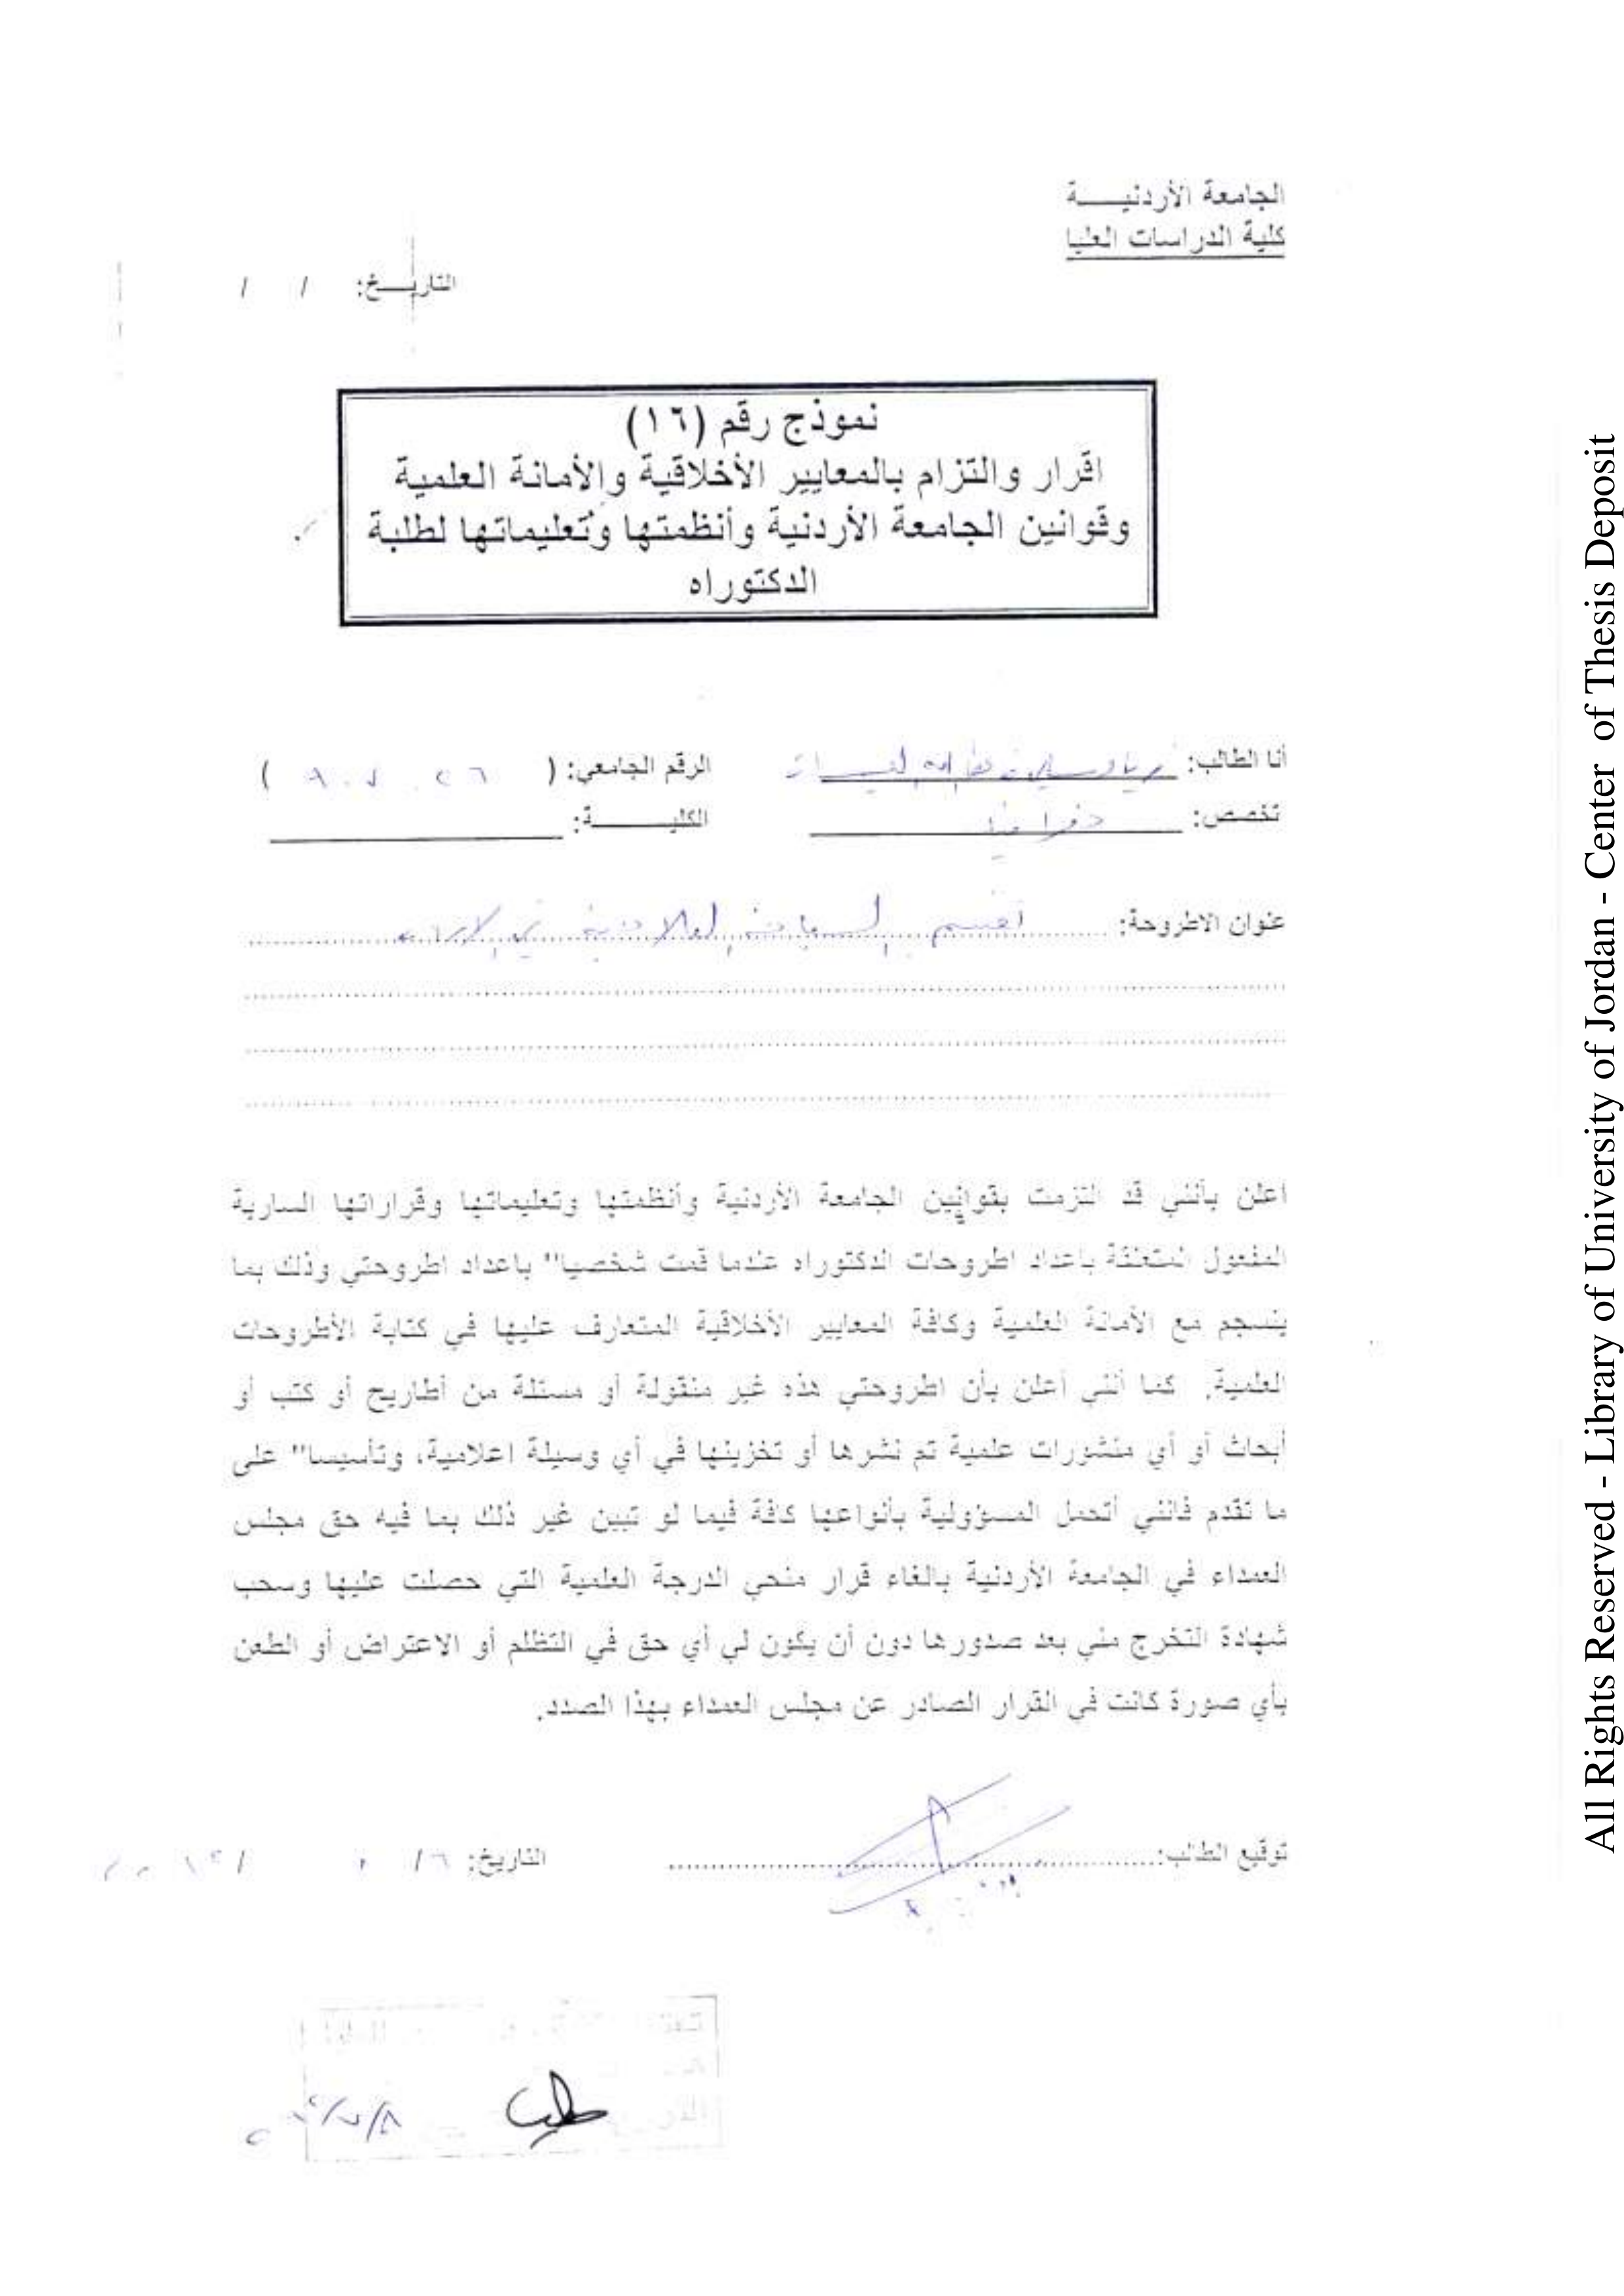 الجامعة الأردنيـــــة
كلية الدراسات العليا
التاريـــخ: / /
نموذج رقم (١٦)
اقرار والتزام بالمعايير الأخلاقية والأمانة العلمية
وقوانين الجامعة الأردنية وأنظمتها وتعليماتها لطلبة
الدكتوراه
أنا الطالب: الرقم الجامعي: ( )
تخصص: الكليـــــــة:
عنوان الاطروحة:
اعلن بأنني قد التزمت بقوانين الجامعة الأردنية وأنظمتها وتعليماتها وقراراتها السارية
المفعول المتعلقة باعداد اطروحات الدكتوراه عندما قمت شخصيا" باعداد اطروحتي وذلك بما
ينسجم مع الأمانة العلمية وكافة المعايير الأخلاقية المتعارف عليها في كتابة الأطروحات
العلمية. كما أنني أعلن بأن اطروحتي هذه غير منقولة أو مستلة من أطاريح أو كتب أو
أبحاث أو أي منشورات علمية تم نشرها أو تخزينها في أي وسيلة اعلامية، وتأسيسا" على
ما تقدم فانني أتحمل المسؤولية بأنواعها كافة فيما لو تبين غير ذلك بما فيه حق مجلس
العمداء في الجامعة الأردنية بالغاء قرار منحي الدرجة العلمية التي حصلت عليها وسحب
شهادة التخرج مني بعد صدورها دون أن يكون لي أي حق في التظلم أو الاعتراض أو الطعن
بأي صورة كانت في القرار الصادر عن مجلس العمداء بهذا الصدد.
توقيع الطالب: التاريخ:
All Rights Reserved - Library of University of Jordan - Center of Thesis Deposit